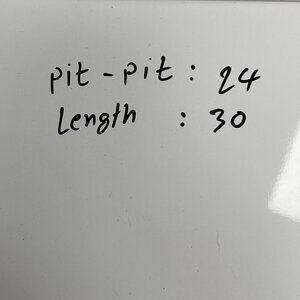 pit-pit : 24
Length : 30